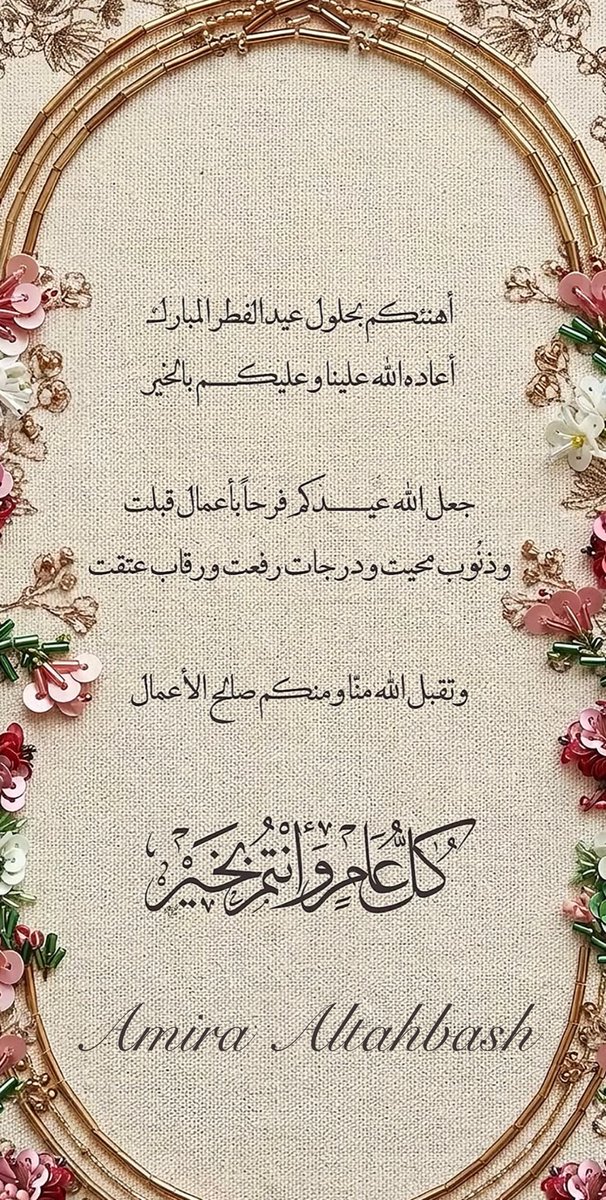 أهنئكم بحلول عيد الفطر المبارك
أعاده الله علينا وعليكم بالخير
جعل الله عيدكم فرحاً بأعمال قبلت
وذنُوب محيت ودرجات رفعت ورقاب عتقت
وتقبل الله منّا ومنكم صالح الأعمال
كُلُّ عَامٍ وَأَنْتُمْ بِخَيْرٍ
Amira Altahbash